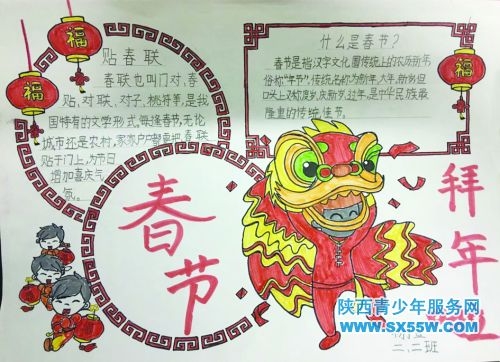 福
福
福
贴春联
春联也叫门对、春
贴、对联、对子、桃符等,是我
国特有的文学形式,每逢春节,无论
城市还是农村,家家户户都要把春联
贴于门上,为节日
增加喜庆气
氛。
什么是春节?
春节是指汉字文化圈传统上的农历新年,
俗称“年节”,传统名称为新年、大年、新岁,但
口头上又称度岁、庆新岁、过年,是中华民族最
隆重的传统佳节。
春节
拜年
二、二班
陕西青少年服务网
www.sx55w.com